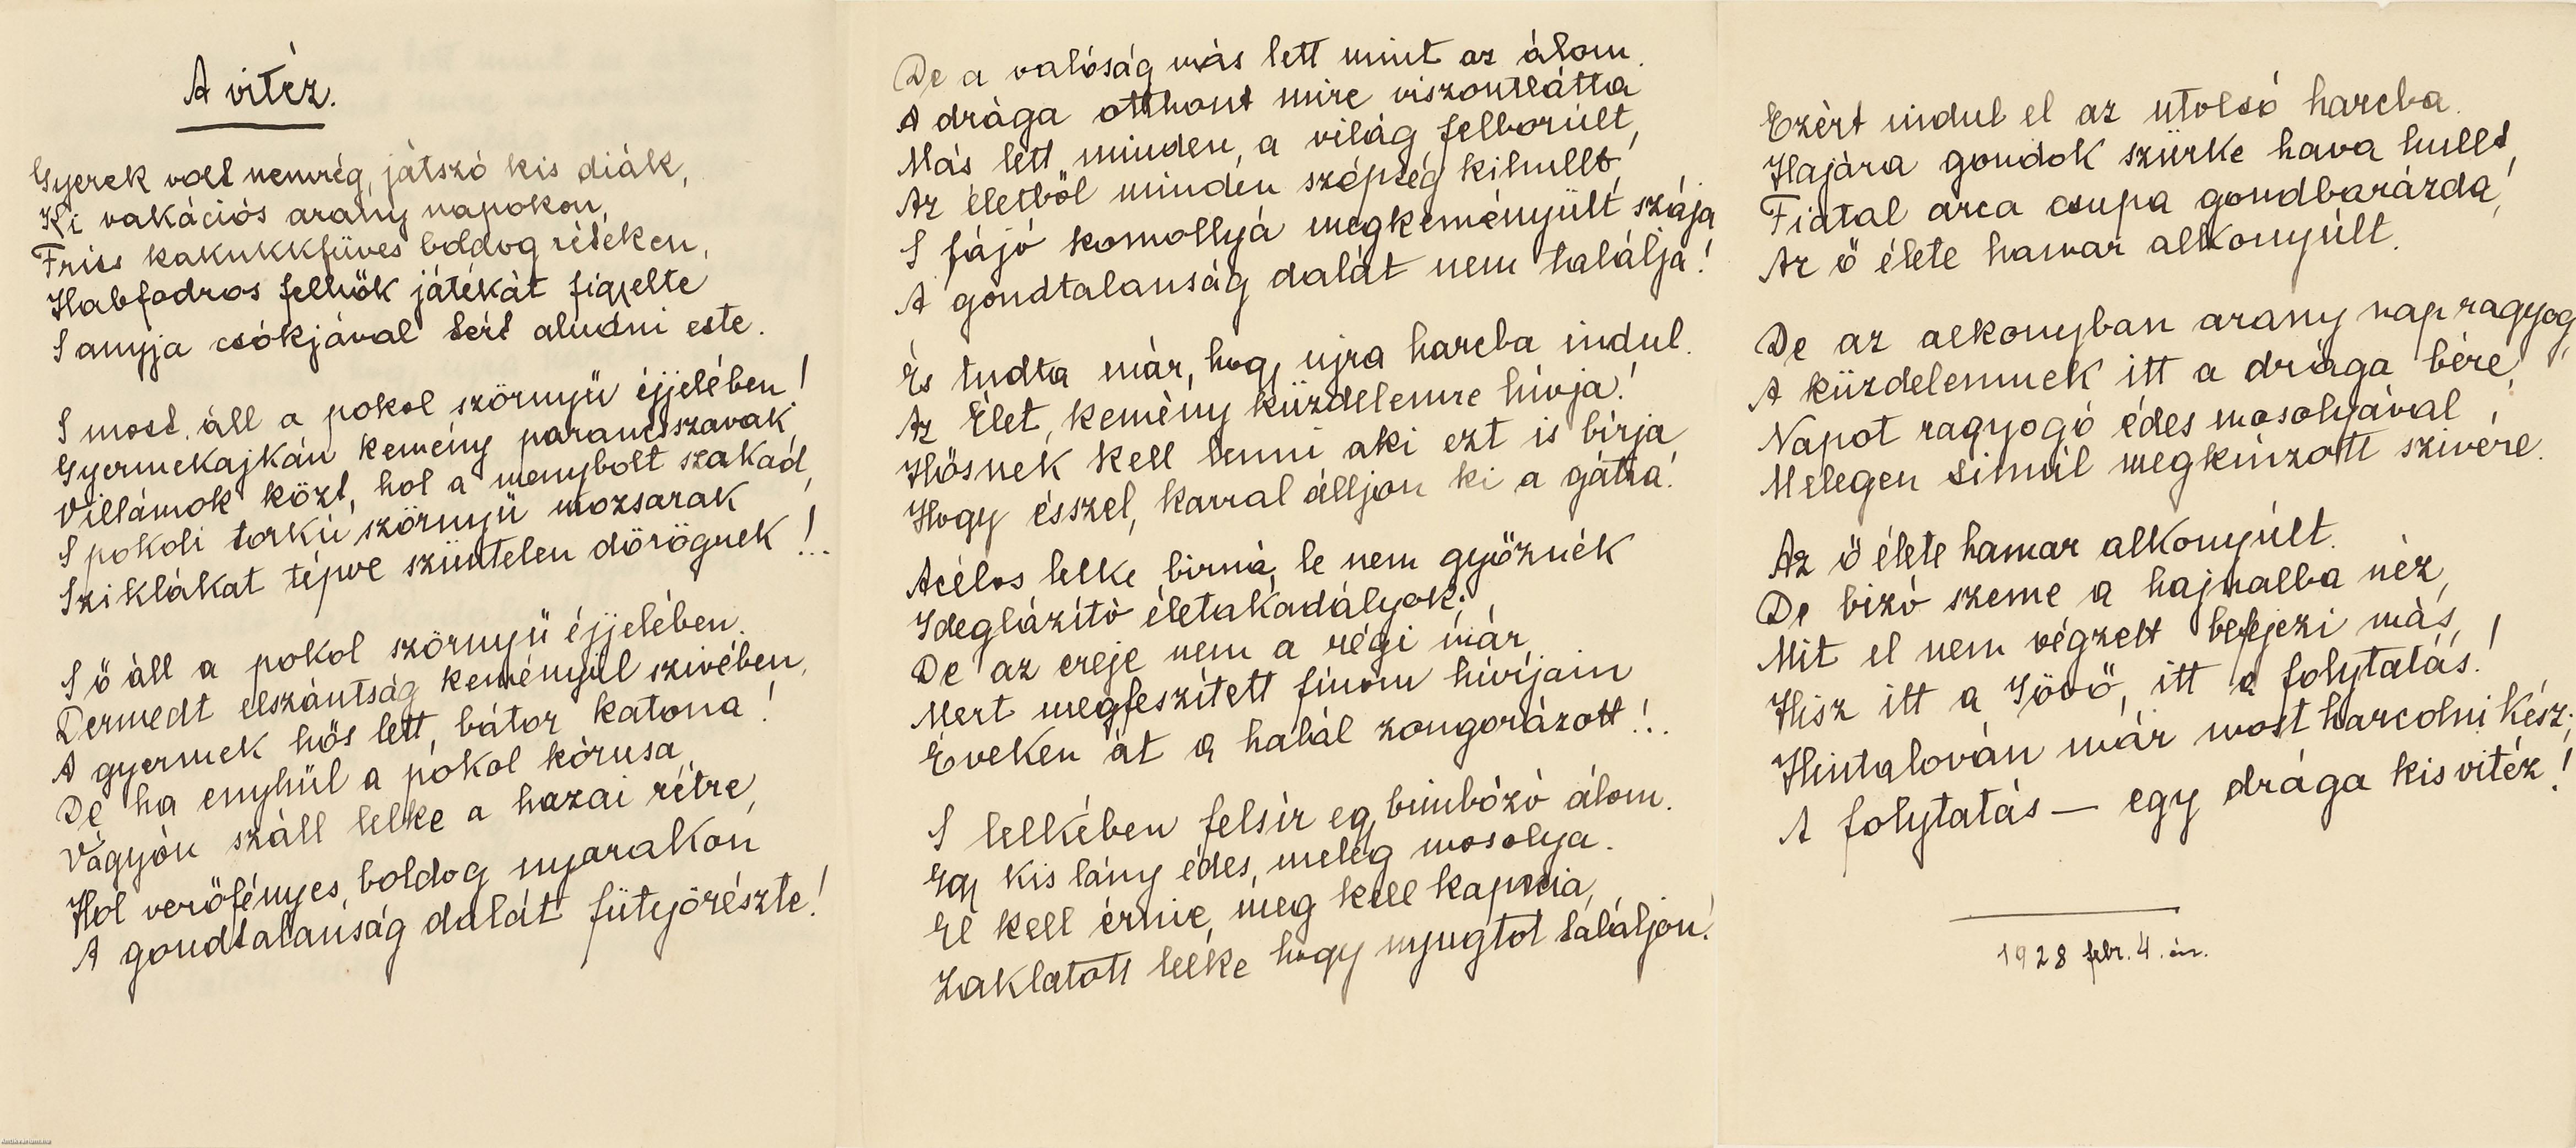 A vitéz.
Gyerek volt nemrég, játszó kis diák,
Ki vakációs arany napokon,
Friss kakukkfüves boldog réteken,
Habfodros felhők játékát figyelte
S anyja csókjával tért aludni este.
S most áll a pokol szörnyü éjjelében!
Gyermekajkán kemény parancsszavak
Villámok közt, hol a menybolt szakad,
S pokoli torkú szörnyü mozsarak
Sziklákat tépve szüntelen dörögnek!..
S ő áll a pokol szörnyü éjjelében.
Dermedt elszántság keményül szivében,
A gyermek hős lett, bátor katona!
De ha enyhül a pokol kórusa,
Vágyón száll lelke a hazai rétre,
Hol verőfényes, boldog nyarakon
A gondtalanság dalát fütyörészte!
De a valóság más lett mint az álom.
A drága otthont mire viszontlátta
Más lett minden, a világ felborúlt,
Az életből minden szépség kihullt,
S fájó komollyá megkeményült szája
A gondtalanság dalát nem találja!
És tudta már, hogy ujra harcba indul.
Az Élet, kemény küzdelemre hívja!
Hősnek kell lenni aki ezt is bírja
Hogy ésszel, karral álljon ki a gátra!
Acélos lelke birná, le nem győznék
IdegLázító életakadályok;
De az ereje nem a régi már,
Mert megfeszített finom húrjain
Éveken át a halál zongorázott!..
S lelkében felsír egy bimbózó álom.
Egy kis lány édes, meleg mosolya.
El kell érnie, meg kell kapnia,
Zaklatott lelke hogy nyugtot találjon!
Ezért indul el az utolsó harcba.
Hajára gondok szürke hava hullt,
Fiatal arca csupa gondbarázda,
Az ő élete hamar alkonyúlt.
De az alkonyban arany nap ragyog,
A küzdelemnek itt a drága bére,
Napot ragyogó édes mosolyával
Melegen simúl megkínzott szivére.
Az ő élete hamar alkonyúlt.
De bizó szeme a hajnalba néz,
Mit el nem végzett befejezi más,
Hisz itt a Jövő, itt a folytatás!
Hintalován már most harcolni kész;
A folytatás — egy drága kis vitéz!
1928 febr. 4. én.
Antikvarium.hu